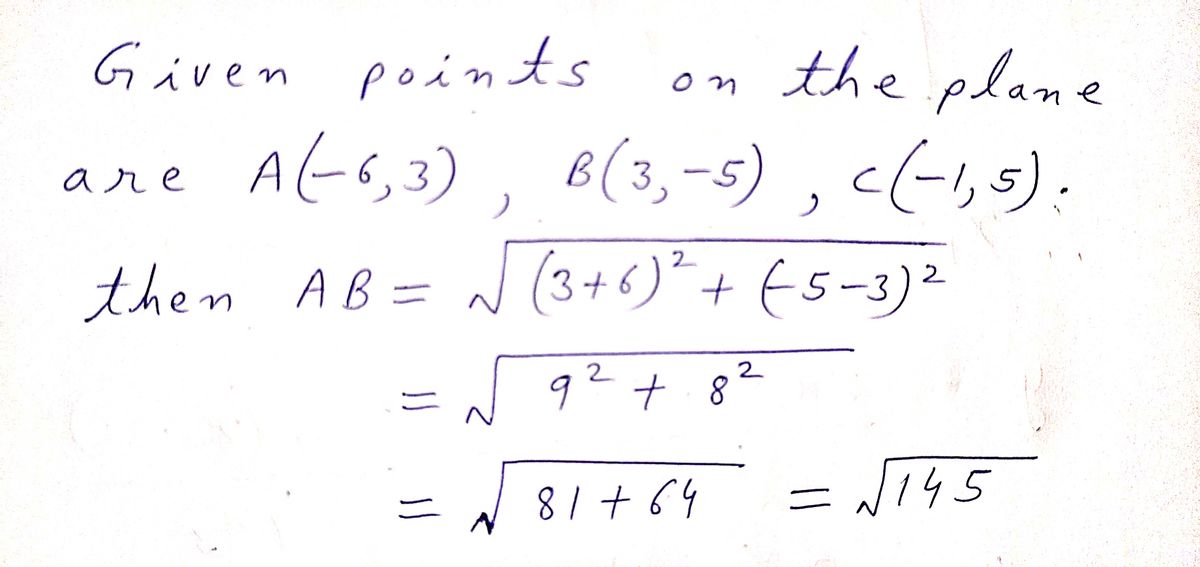 Given points on the plane
are A(-6,3), B(3,-5), C(-1,5).
then AB = √(3+6)² + (-5-3)²
= √9² + 8²
= √81 + 64 = √145